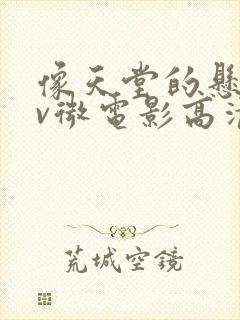 像天堂的悬
v微电影高清
荒城空镜